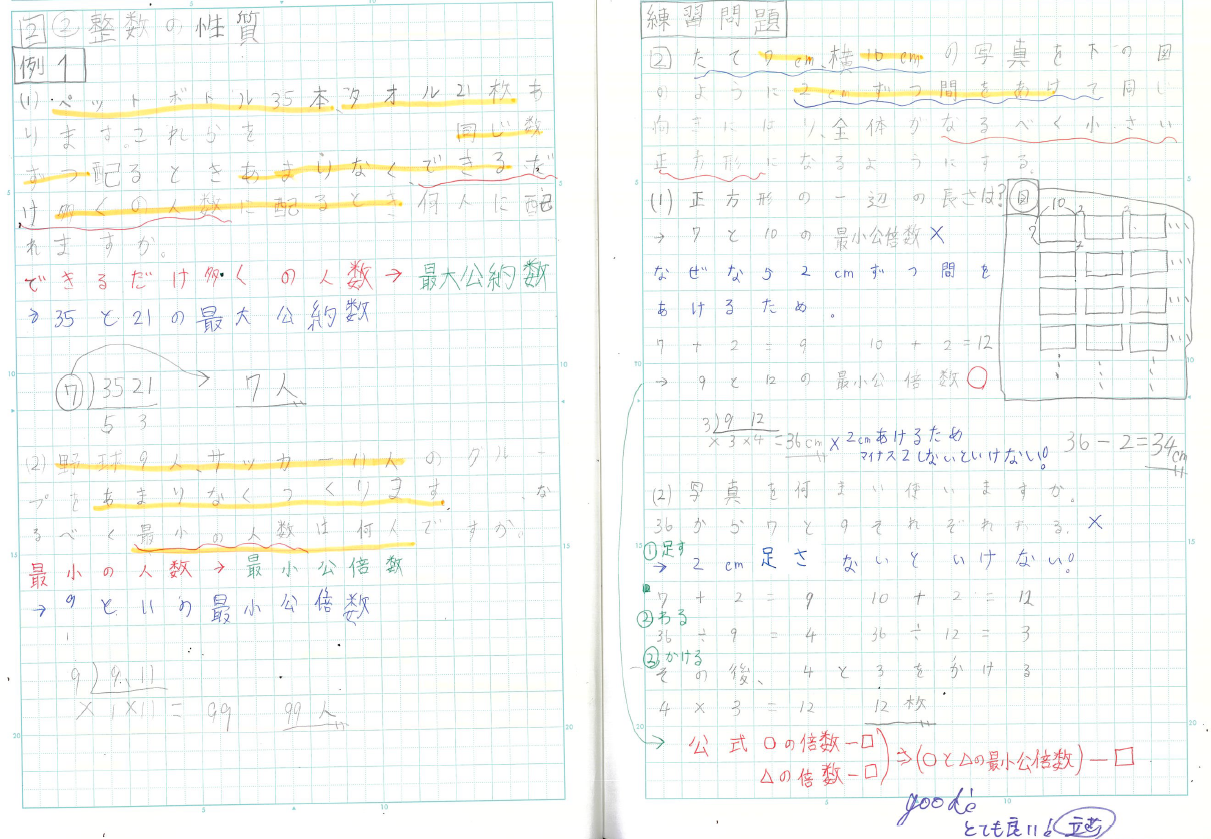 2 ② 整数の性質
例1
(1) ペットボトル35本、タオル21枚あ
ります。これらを 同じ数
ずつ配るときあまりなくできるだ
け多くの人数に配るとき何人に配
れますか。
できるだけ多くの人数→最大公約数
→35と21の最大公約数
7)35 21 7人
5 3
(2) 野球9人、サッカー11人のグルー
プをあまりなくつくります。 な
るべく最小の人数は何人ですか。
最小の人数→最小公倍数
→9と11の最小公倍数
9)9、11
×1×11=99 99人
練習問題
2 たて7cm、横10cmの写真を下の図
のように2cmずつ間をあけて同じ
向きにはり、全体がなるべく小さい
正方形になるようにする。
(1) 正方形の一辺の長さは?
図
10 2 2
7
2
→7と10の最小公倍数×
なぜなら2cmずつ間を
あけるため。
7+2=9 10+2=12
→9と12の最小公倍数○
3)9 12
×3×4=36cm × 2cmあけるため
マイナス2しないといけない! 36-2=34cm
(2) 写真を何まい使いますか。
36から7と9それぞれわる。×
①足す
→2cm足さないといけない!
7+2=9 10+2=12
②わる
36÷9=4 36÷12=3
③かける
その後、4と3をかける
4×3=12 12枚
→公式 ○の倍数-□
△の倍数-□ ⇒(○と△の最小公倍数)-□
good!
とても良い!